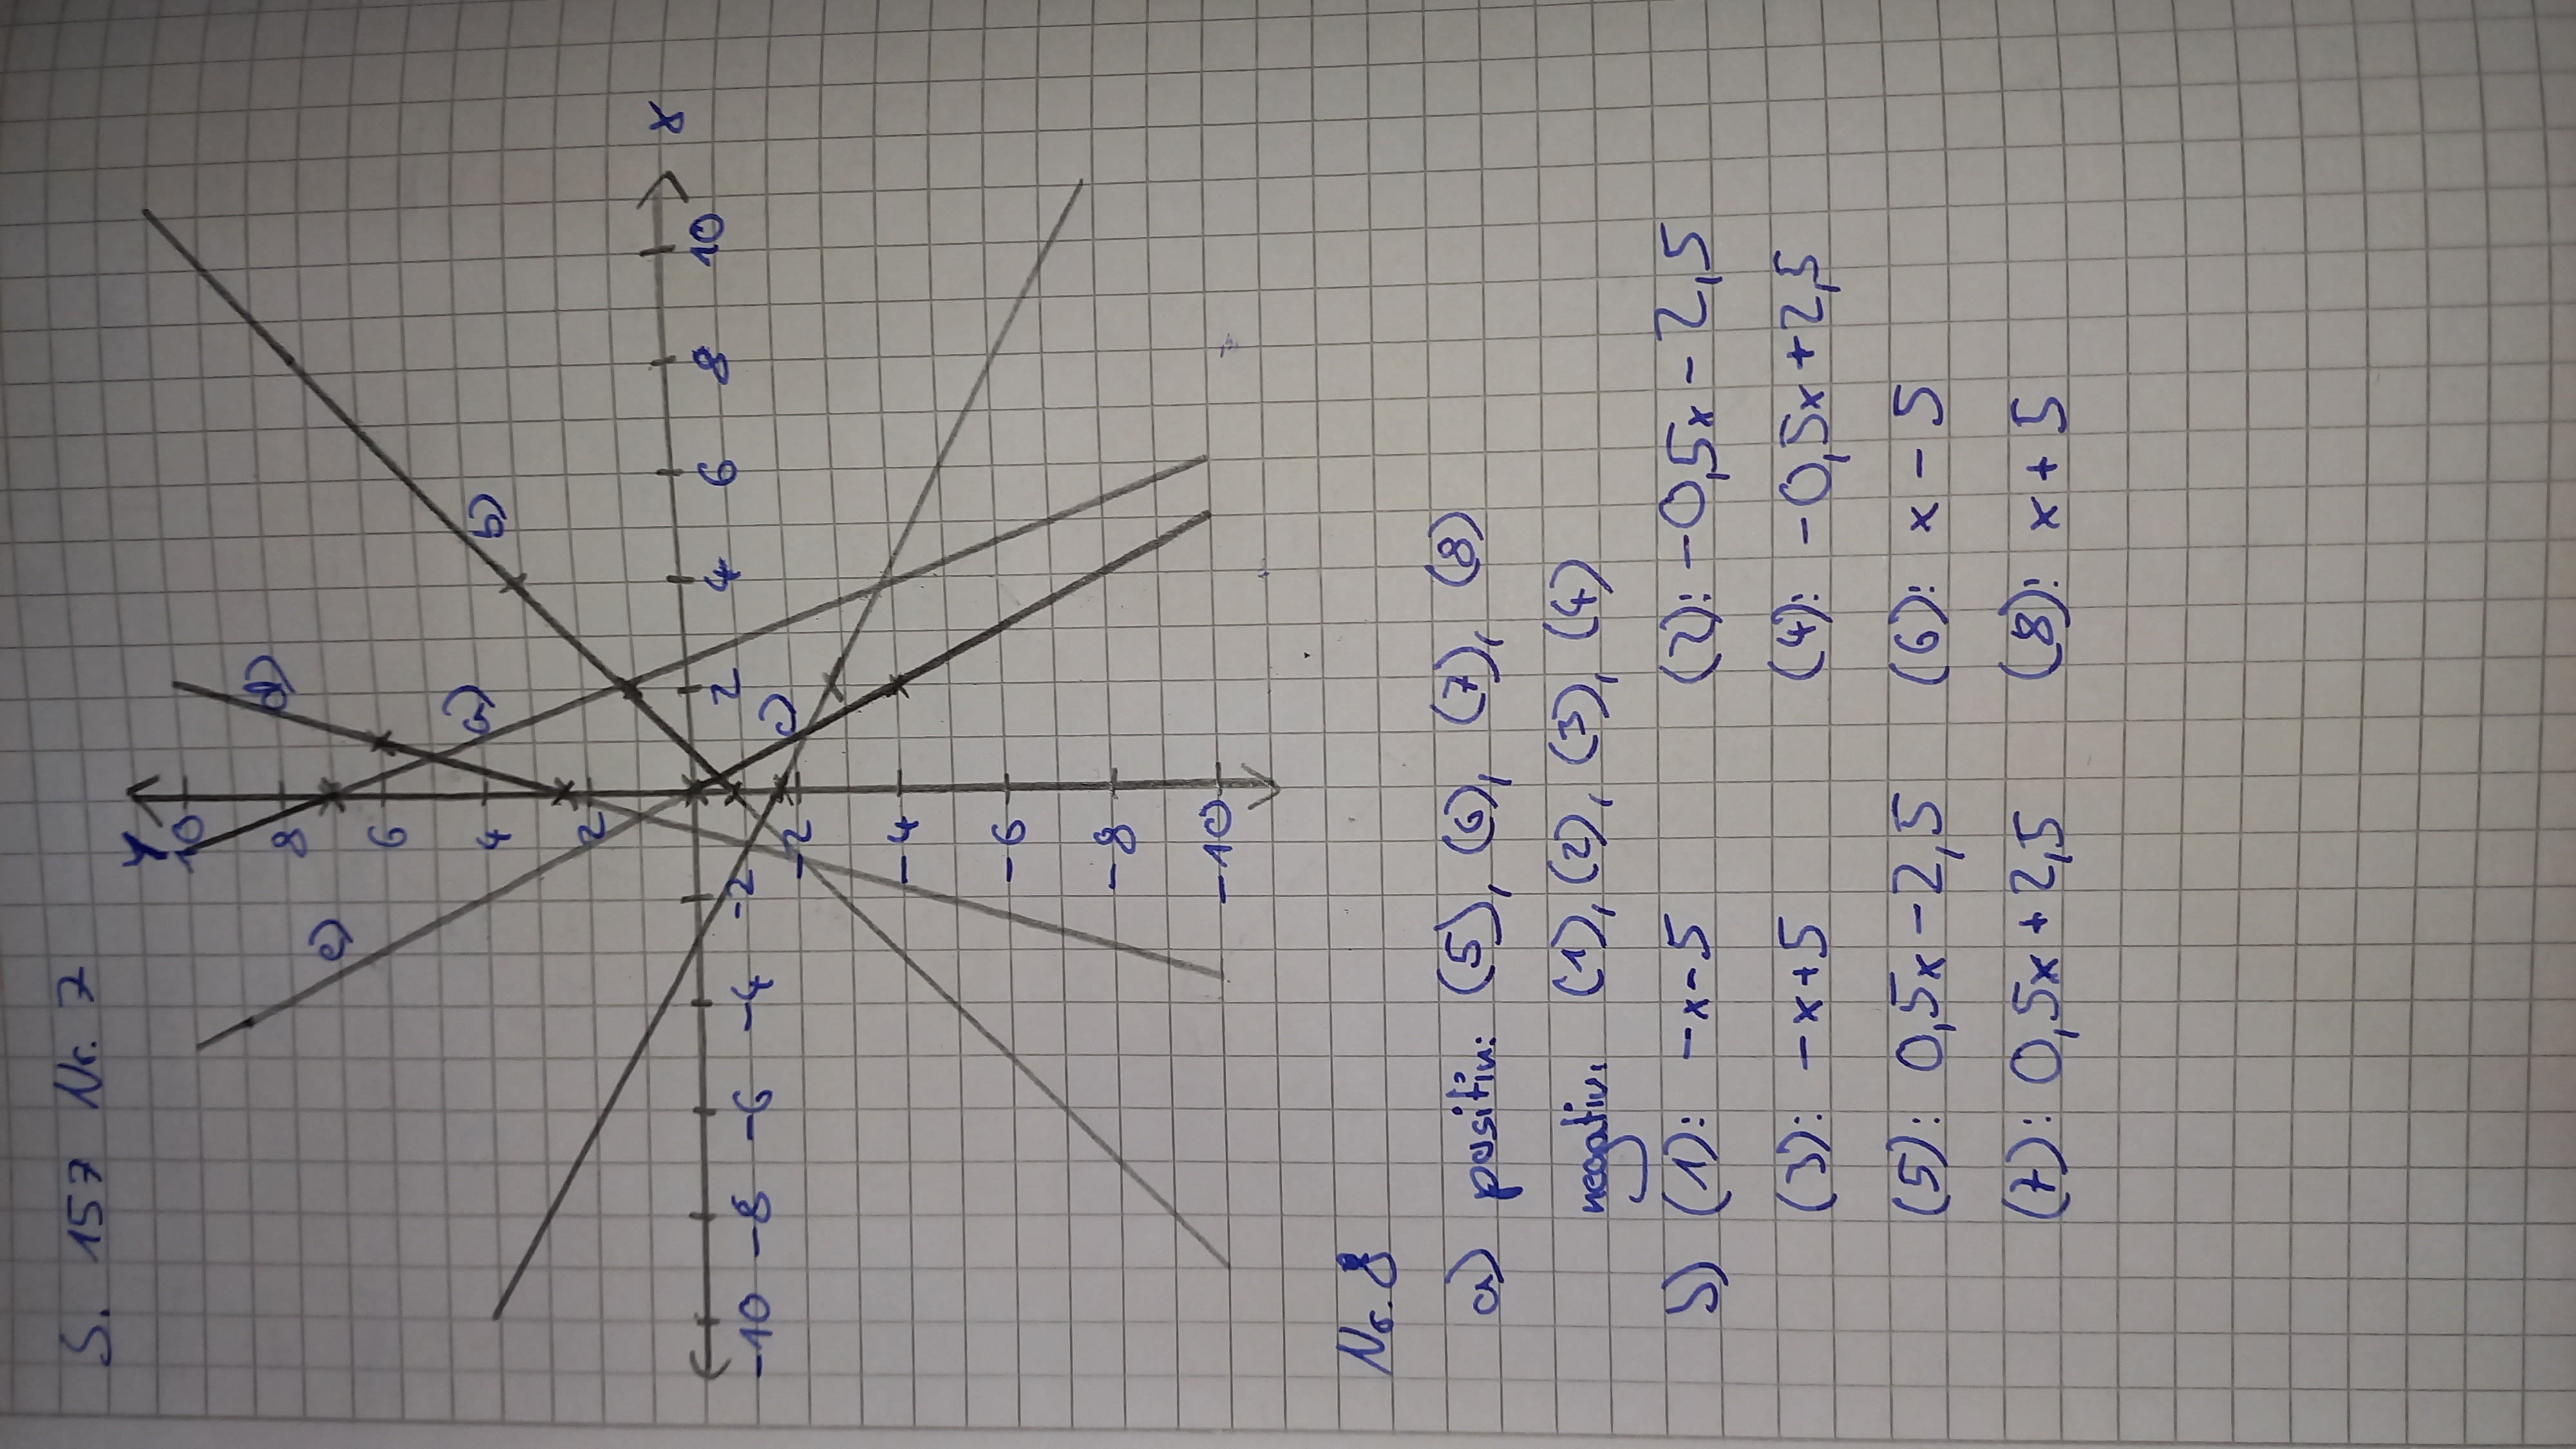 S. 157 Nr. 7
y
10
8
6
4
2
-2
-4
-6
-8
-10
-10 -8 -6 -4 -2 2 4 6 8 10 x
d)
a)
b)
c)
e)
Nr. 8
a) positiv: (5), (6), (7), (8)
negativ: (1), (2), (3), (4)
b) (1): -x-5 (2): -0,5x-2,5
(3): -x+5 (4): -0,5x+2,5
(5): 0,5x-2,5 (6): x-5
(7): 0,5x+2,5 (8): x+5